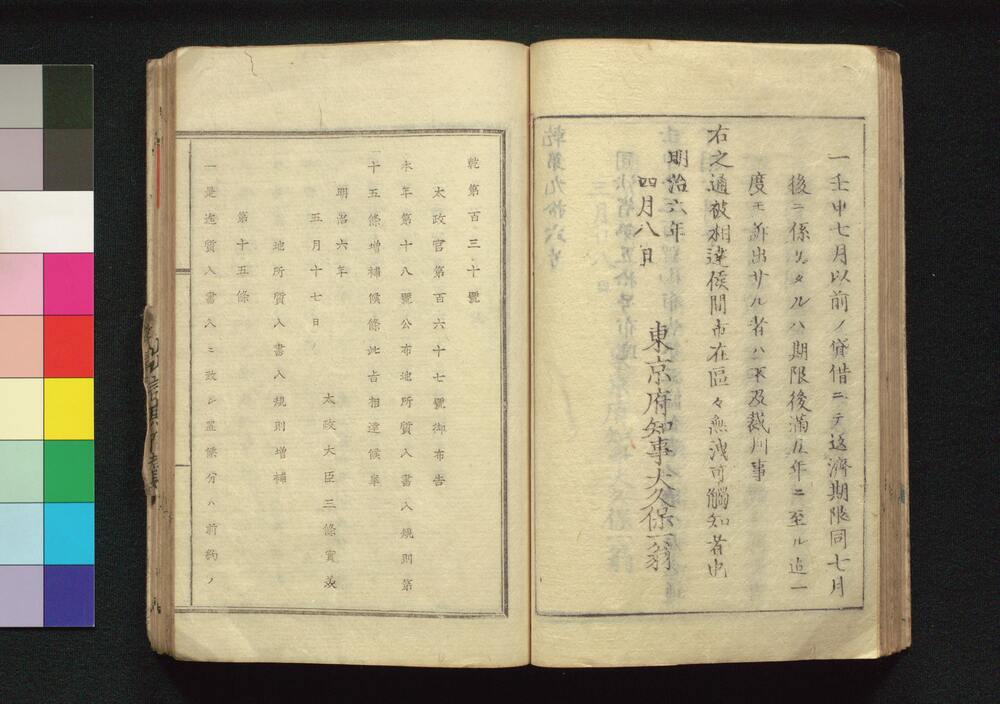 一壬申七月以前ノ貸借ニテ返済期限同七月
後ニ係リタルハ期限後満五年ニ至ル迄一
度モ訴出サル者ハ不及裁判事
右之通被相達候間市在區々無洩可觸知者也
明治六年
四月八日
東京府知事大久保一翁
乾第百三十號
太政官第百六十七號御布告
本年第十八號公布地所質入書入規則第
十五條增補候條此旨相達候事
明治六年
五月十七日
太政大臣三條實美
地所質入書入規則增補
第十五條
一是迄質入書入ニ致シ置候分ハ前約ノ